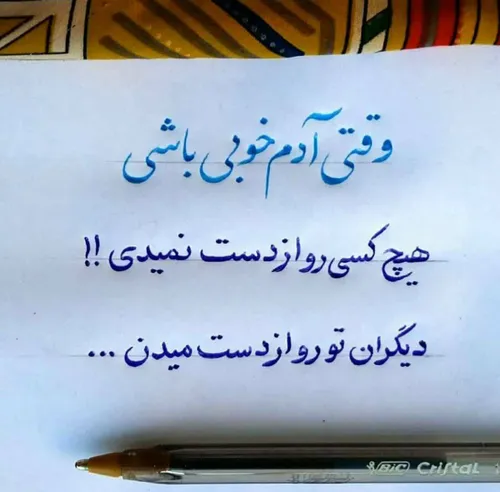 وقتی آدم خوبی باشی
هیچ کسی رو از دست نمیدی !!
دیگران تو رو از دست میدن ...
BIC Cristal